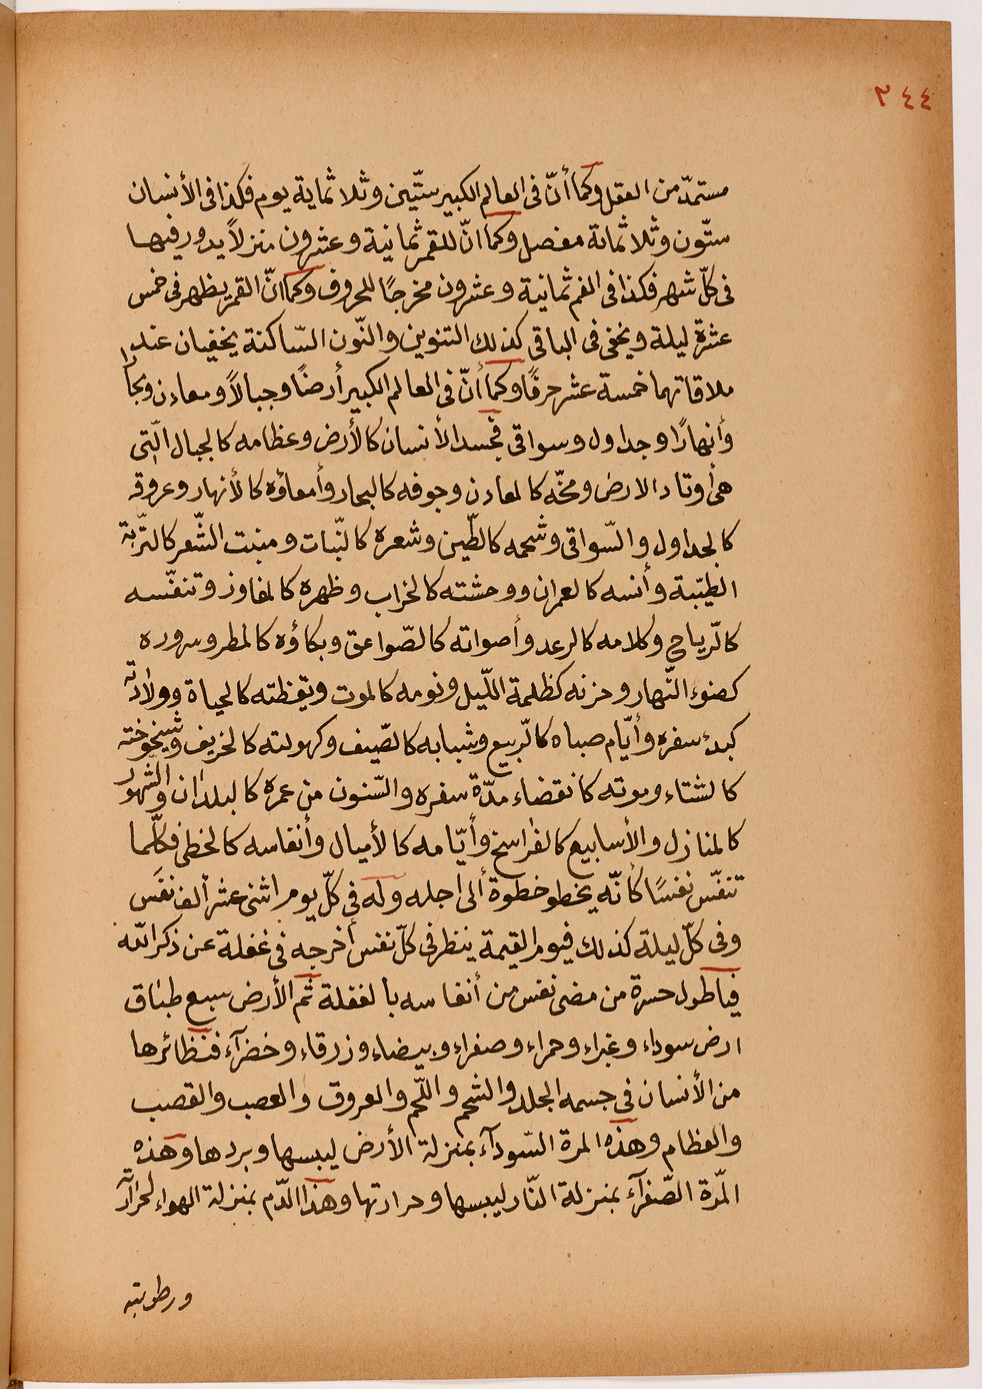 ٢٤٤
مستمدّ من العقل وكما أنّ فى العالم الكبير ستّين وثلاثماية يوم فكذا فى الأنسان
ستّون وثلاثمائة مفصل وكما انّ للقمر ثمانية وعشرون منزلاً يدور فيها
فى كلّ شهر فكذا فى الفم ثمانية وعشرون مخرجًا للحروف وكما انّ القمر يظهر فى خمس
عشرة ليلة ويخفى فى الباقى كذلك التنوين والنّون السّاكنة يخفيان عند
ملاقاتهما خمسة عشر حرفًا وكما أنّ فى العالم الكبير أرضًا وجبالاً ومعادن وبحارا
وأنهارًا وجداول وسواقى فجسد الأنسان كالأرض وعظامه كالجبال الّتى
هى أوتاد الارض ومخّه كالمعادن وجوفه كالبحار وأمعاؤه كالأنهار وعروقه
كالجداول والسّواقى وشحمه كالطّين وشعره كالنّبات ومنبت الشّعر كالتّربة
الطيّبة وأنسه كالعمران ووحشته كالخراب وظهره كالمفاوز وتنفّسه
كالّرياح وكلامه كالرعد وأصواته كالصّواعق وبكاؤه كالمطر وسروره
كضوء النّهار وحزنه كظلمة اللّيل ونومه كالموت ويقظته كالحياة وولادته
كبدء سفره وأيّام صباه كالّربيع وشبابه كالصّيف وكهولته كالخريف وشيخوخته
كالشتاء وموته كانقضاء مدّة سفره والسّنون من عمره كالبلدان والشهور
كالمنازل والأسابيع كالفراسخ وأيّامه كالأميال وأنفاسه كالخطى فكلّما
تنفّس نفسًا كأنّه يخطو خطوة ألى اجله وله فى كلّ يوم اثنى عشر ألف نفَس
وفى كلّ ليلة كذلك فيوم القيمة ينظر فى كلّ نفس أخرجه فى غفلة عن ذكر الله
فياطول حسرة من مضى نفس من أنفاسه بالغفلة ثم الأرض سبع طباق
ارض سوداء وغبراء وحمراء وصفراء وبيضاء وزرقاء وخضرآء فنظائرها
من الأنسان فى جسمه الجلد والشحم واللّحم والعروق والعصب والقصب
والعظام وهذه المرة السّودآء بمنزلة الأرض ليبسها وبردها وهذه
المّرة الصّفرآء بمنزلة النّار ليبسها وحرارتها وهذا الدّم بمنزلة الهواء لحرارته
ورطوبته